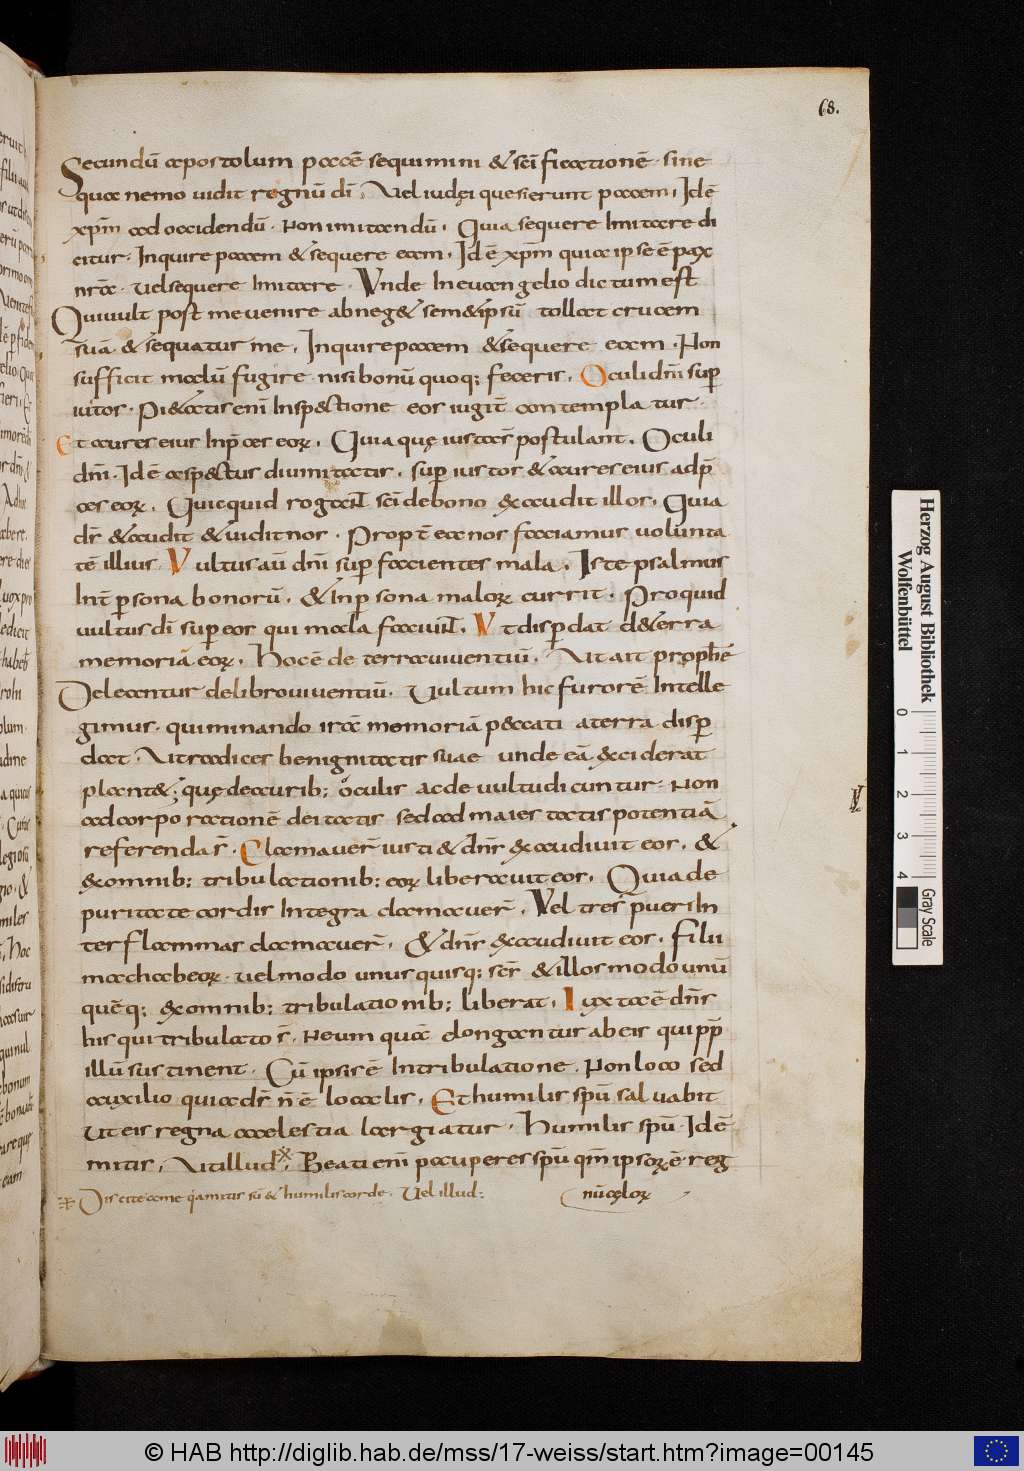 68.
Secundū apostolum pacē sequimini & scīficationē · sine
qua nemo uidit regnū dī · Vel iudęi quesierunt pacem · Idē
xpm̄ ad occidendū · Non imitandū · Quia sequere Imitare di
citur · Inquire pacem & sequere eam · Idē xpm̄ quia ipse ē pax
nrā · uel sequere Imitare · Vnde In euangelio dictum est
Qui uult post me uenire abneg& sem&ipsū tollat crucem
suā · & sequatur me · Inquire pacem & sequere eam · Non
sufficit malū fugire nisi bonū quoq; feceris · Oculi dn̄i sup̄
iustos · Pi&atis enī Insp&tione eos iugit̄ contemplatur ·
Et aures eius In p̄ces eoꝝ · Quia quę iusta s̄ postulant · Oculi
dn̄i · Idē asp&tus diuinitatis · sup̄ iustos & aures eius ad p̄
ces eoꝝ · Quicquid rogant sc̄i de bono exaudit illos · Quia
ds̄ & audit & uidit nos · Propt̄ ea nos faciamus uolunta
tē illius · Vultus aū dn̄i sup̄ facientes mala · Iste psalmus
Int̄ p̄sona bonorū · & In p̄sona maloꝝ currit · Pro quid
uultus dī sup̄ eos qui mala faciunt · Vt disp̄dat de terra
memoriā eoꝝ · Hoc ē de terra uiuentiū · Vt ait proph&ē
Deleantur de libro uiuentiū · Vultum hic furorē Intelle
gimus · qui minando irā memoriā peccati a terra disp̄
dat · Vt radices benignitatis suae unde eā exciderat
plant&; quę de aurib; oculis ac de uultu dicuntur · Non
ad corporationē deitatis sed ad maiestatis potentiā
referenda s̄ · Clamauer̄ iusti & dn̄s exaudiuit eos · &
ex omnib; tribulationib; eoꝝ liberauit eos · Quia de
puritate cordis Integra clamauer̄ · Vel tres pueri In
ter flammas clamauer̄ · & dn̄s exaudiuit eos · filii
machabeoꝝ · uel modo unus quisq; ser̄ & illos modo unū
quēq; ex omnib; tribulationib; liberat · Iuxta ē dn̄s
his qui tribulato s̄ · Ne umquā elongantur ab eis qui ppt̄
illū sustinent · Cū ipsis ē In tribulatione · Non loco sed
auxilio quia ds̄ n̄ ē localis · Et humilis spū saluabit
Vt eis regna caelestia largiatur · Humilis spū · Idē
mitis · Vt illud · Beati enī pauperes spū qm̄ ipsoꝝ ē reg
nū cęloꝝ
Discite a me q̄a mitis sū & humilis corde · Vel illud :
Herzog August Bibliothek
Wolfenbüttel
0 1 2 3 4
Gray Scale
© HAB http://diglib.hab.de/mss/17-weiss/start.htm?image=00145